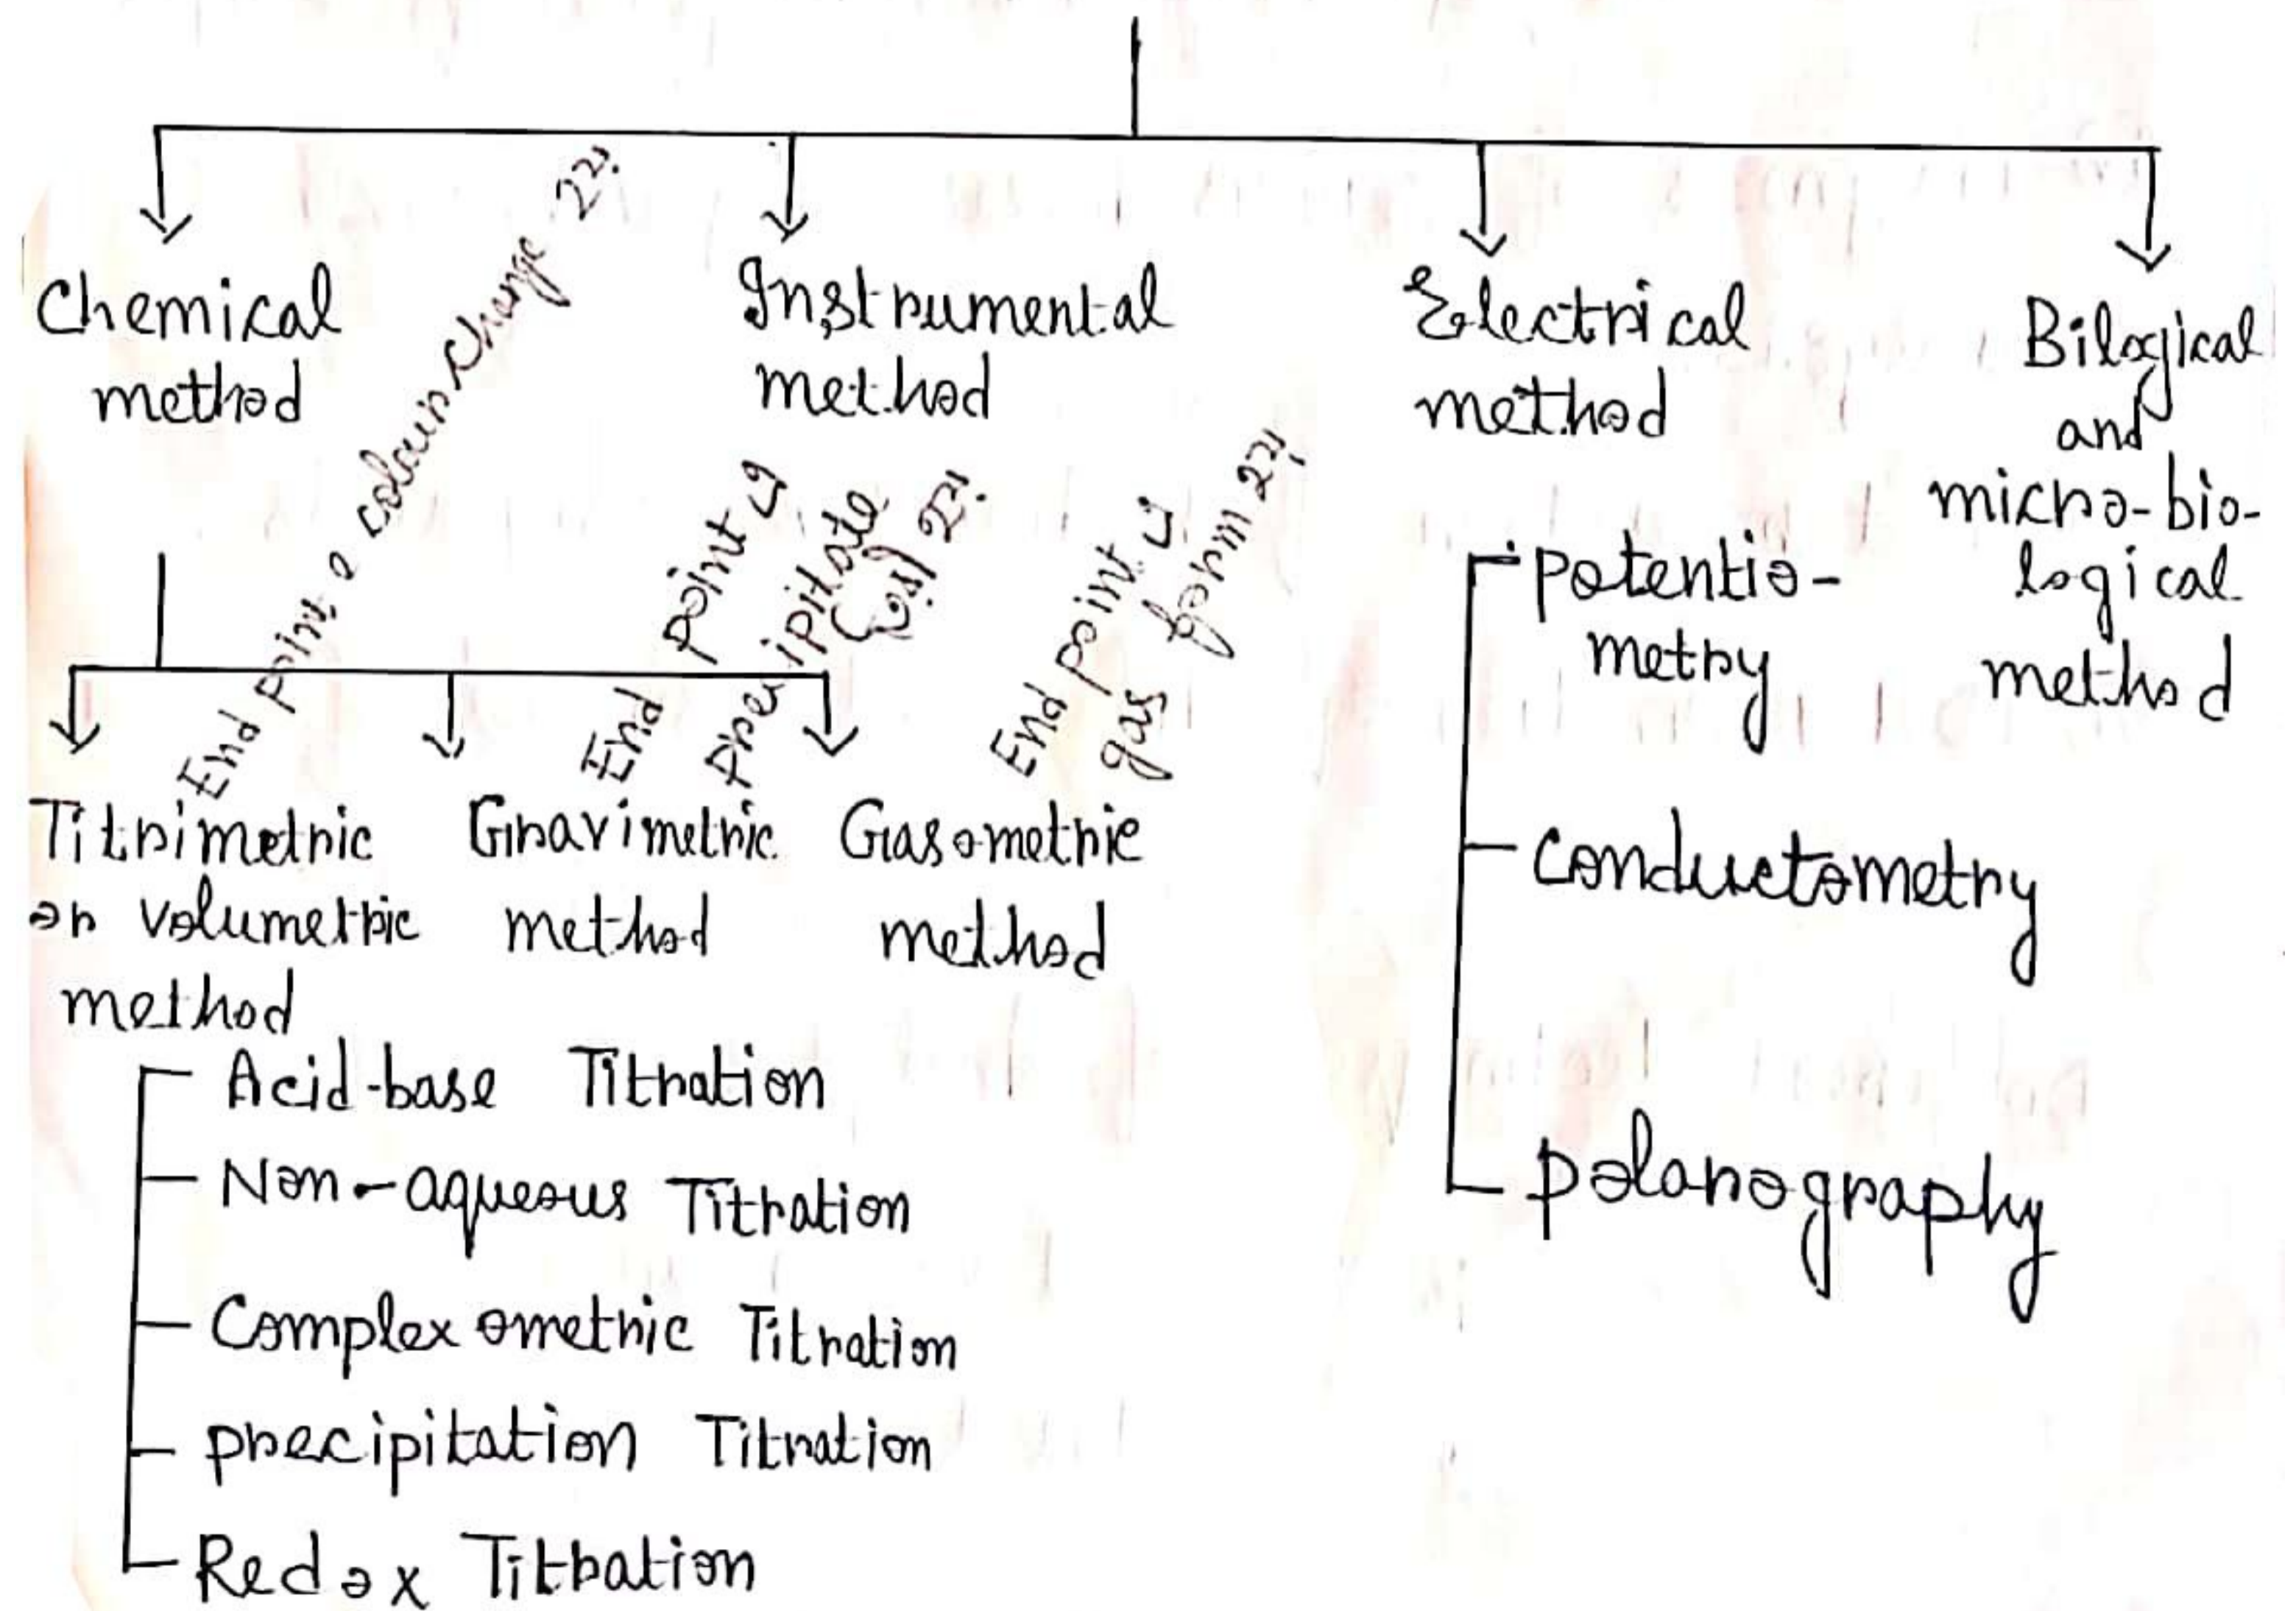 Chemical
method
Instrumental
method
Electrical
method
Bilogical
and
micro-bio-
logical
method
End point এ colour change হয়।
End point এ
precipitate
তৈরী হয়।
End point এ
gas form হয়।
Titrimetric
or volumetric
method
Gravimetric
method
Gasometric
method
Acid-base Titration
Non-aqueous Titration
Complexometric Titration
precipitation Titration
Redox Titration
potentio-
metry
conductometry
polarography